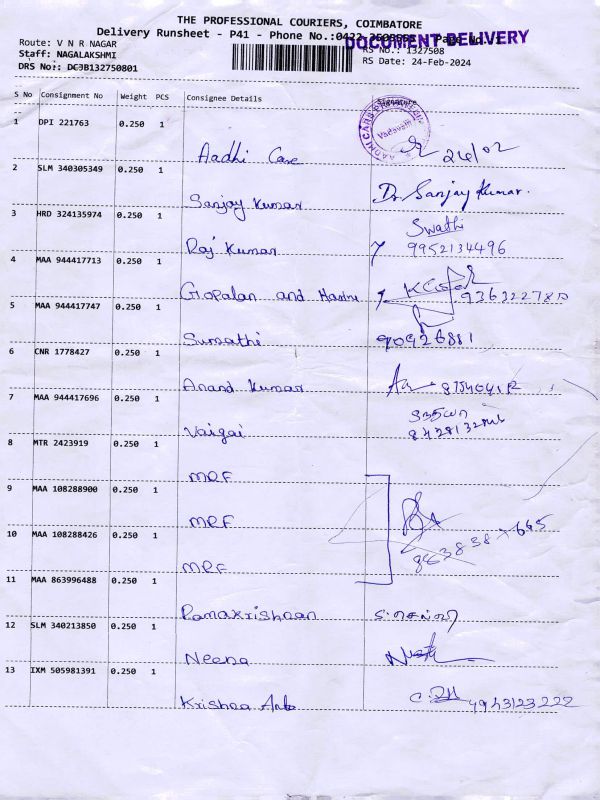 THE PROFESSIONAL COURIERS, COIMBATORE
Delivery Runsheet - P41 - Phone No.:0422 Page No.
DOCUMENT DELIVERY
Route: V N R NAGAR
RS No.: 1327508
Staff: NAGALAKSHMI
RS Date: 24-Feb-2024
DRS No:: DC3B132750801
S No Consignment No Weight PCS Consignee Details Signature
1 DPI 221763 0.250 1
Aadhi Care 24/02
2 SLM 340305349 0.250 1
Sanjay Kumar Dr. Sanjay Kumar.
3 HRD 324135974 0.250 1 Swathi
Raj Kumar 9952134496
4 MAA 944417713 0.250 1
Gopalan and
5 MAA 944417747 0.250 1
Sumathi 90926881
6 CNR 1778427 0.250 1
Anand Kumar
7 MAA 944417696 0.250 1
Vaigai
8 MTR 2423919 0.250 1
MRF
9 MAA 108288900 0.250 1
MRF
10 MAA 108288426 0.250 1
MRF
11 MAA 863996488 0.250 1
Ramakrishnan
12 SLM 340213850 0.250 1
Neena
13 IXM 505981391 0.250 1
Krishna 4943123222